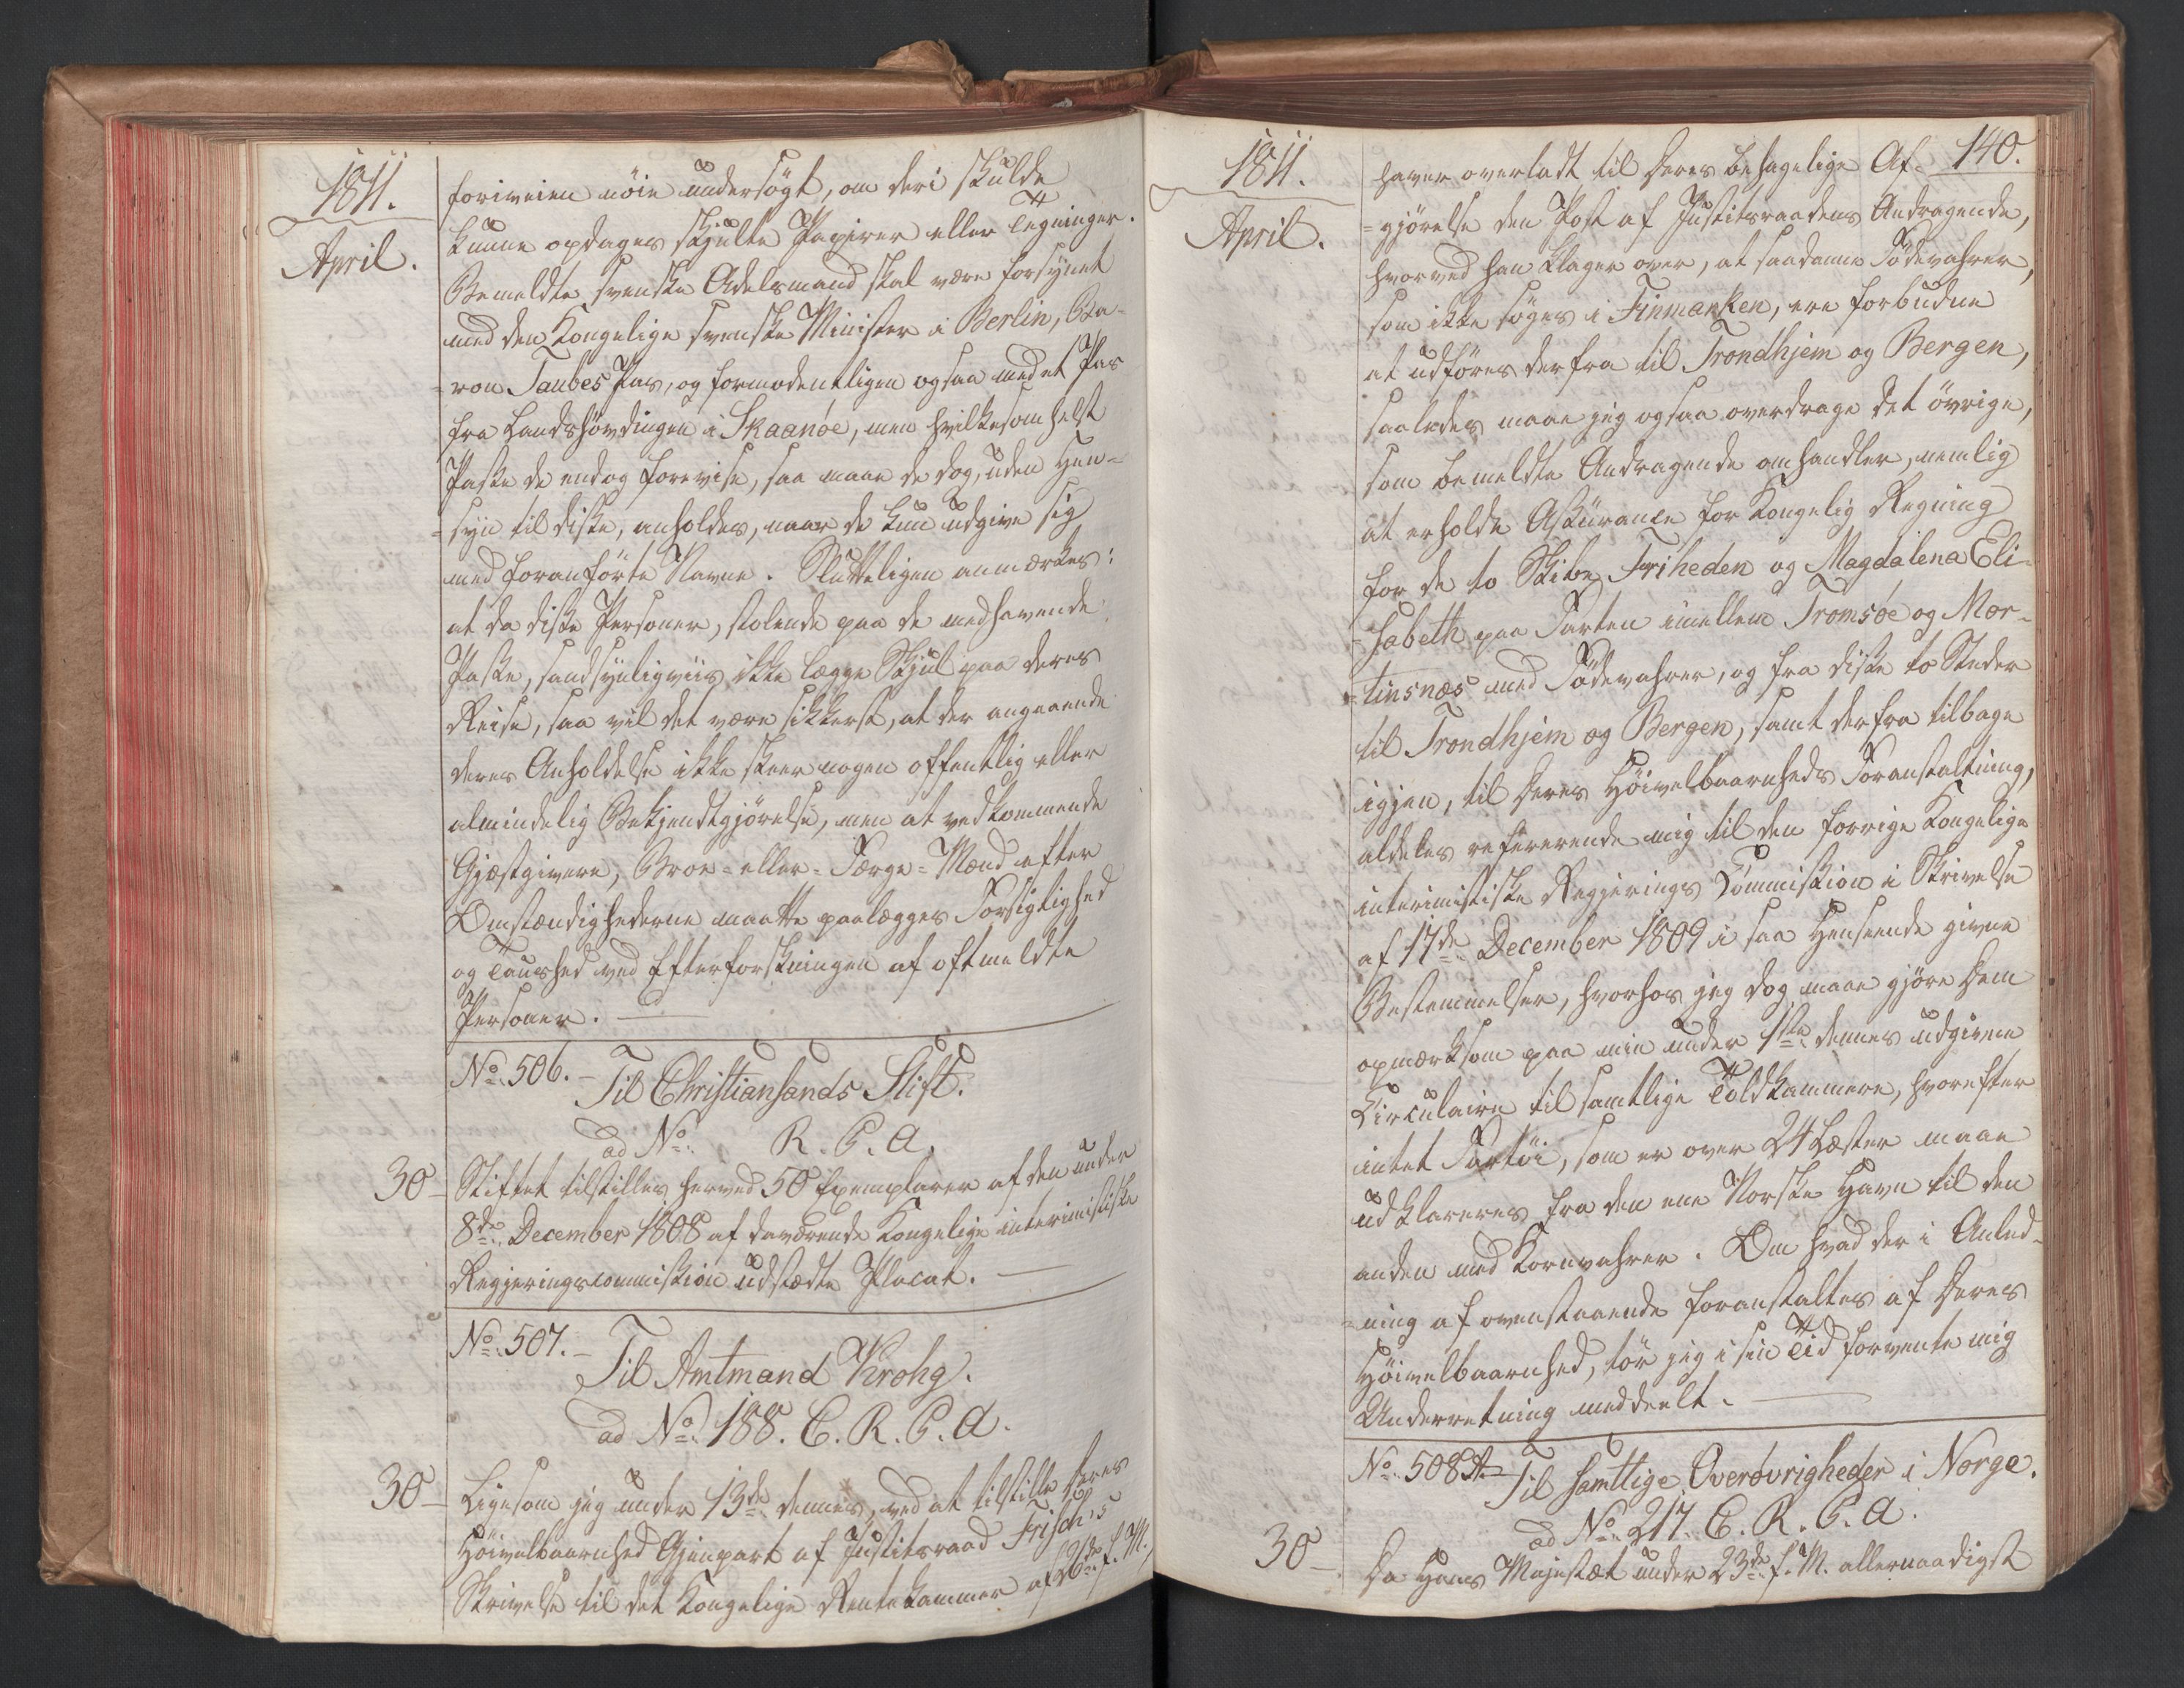 1811.
April.
foriveien nöie undersögt, om deri skulde
kunne opdages skjulte Papirer eller Tegninger.
Bemeldte svenske Adelsmand skal være forsynet
med den Kongelige svenske Minister i Berlin, Ba-
=ron Taubes Pas, og formodentligen ogsaa med et Pas
fra Landshövdingen i Skaanöe, men hvilkesomhelst
Passe de endog forevise, saa maae de dog, uden Hen-
=syn til disse, anholdes, naar de kun udgive sig
med foranförte Navne. Slutteligen anmærkes:
at da disse Personer, stolende paa de medhavende
Passe, sandsynligviis ikke lægge Skjul paa deres
Reise, saa vil det være sikkerst, at der angaaende
deres Anholdelse ikke skeer nogen offentlig eller
almindelig Bekjendtgjörelse, men at vedkommende
Gjæstgivere, Broe- eller- Færge- Mænd efter
Omstændighederne maatte paalægges Forsigtighed
og Taushed ved Efterforskningen af oftmeldte
Personer.
No. 506. Til Christiansands Stift.
ad No. R. C. A.
30 Stiftet tilstilles herved 50 Exemplarer af den under
8de December 1808 af daværende Kongelige interimistiske
Regjeringscommission udstædte Placat.
No. 507. Til Amtmand Krohg.
ad No. 188. C. R. C. A.
30 Ligesom jeg under 13de dennes, ved at tilstille Deres
Höivelbaarnhed Gjenpart af Justitsraad Frisch's
Skrivelse til det Kongelige Rentekammer af 26de f. M.,
1811.
April.
140.
haver overladt til Deres behagelige Af-
=gjörelse den Post af Justitsraadens Andragende,
hvorved han klager over, at saadanne Födevahrer,
som ikke söges i Finmarken, ere forbudne
at udföres derfra til Trondhjem og Bergen,
saaledes maae jeg ogsaa overdrage det övrige,
som bemeldte Andragende omhandler, nemlig
at erholde Assurance for Kongelig Regning
for de to Skibe Friheden og Magdalena Eli-
=sabeth paa Farten imellem Tromsöe og Mor-
=tinsnæs med Födevahrer, og fra disse to Steder
til Trondhjem og Bergen, samt derfra tilbage
igjen, til Deres Höivelbaarnheds Foranstaltning,
aldeles refererende mig til den forrige Kongelige
interimistiske Regjerings Commission i Skrivelse
af 17de December 1809 i saa Henseende givne
Bestemmelser, hvorhos jeg dog maae gjöre Dem
opmærksom paa min under 1ste dennes udgivne
Circulaire til samtlige Toldkammere, hvorefter
intet Fartöi, som er over 24 Læster maae
udklareres fra den ene Norske Havn til den
anden med Kornvahrer. Om hvad der i Anled-
=ning af ovenstaaende foranstaltes af Deres
Höivelbaarnhed, tör jeg i sin Tid forvente mig
Underretning meddeelt.
No. 508 A. Til samtlige Overövrigheder i Norge.
ad No. 217. C. R. C. A.
30 Da Hans Majestæt under 23de f. M. allernaadigst